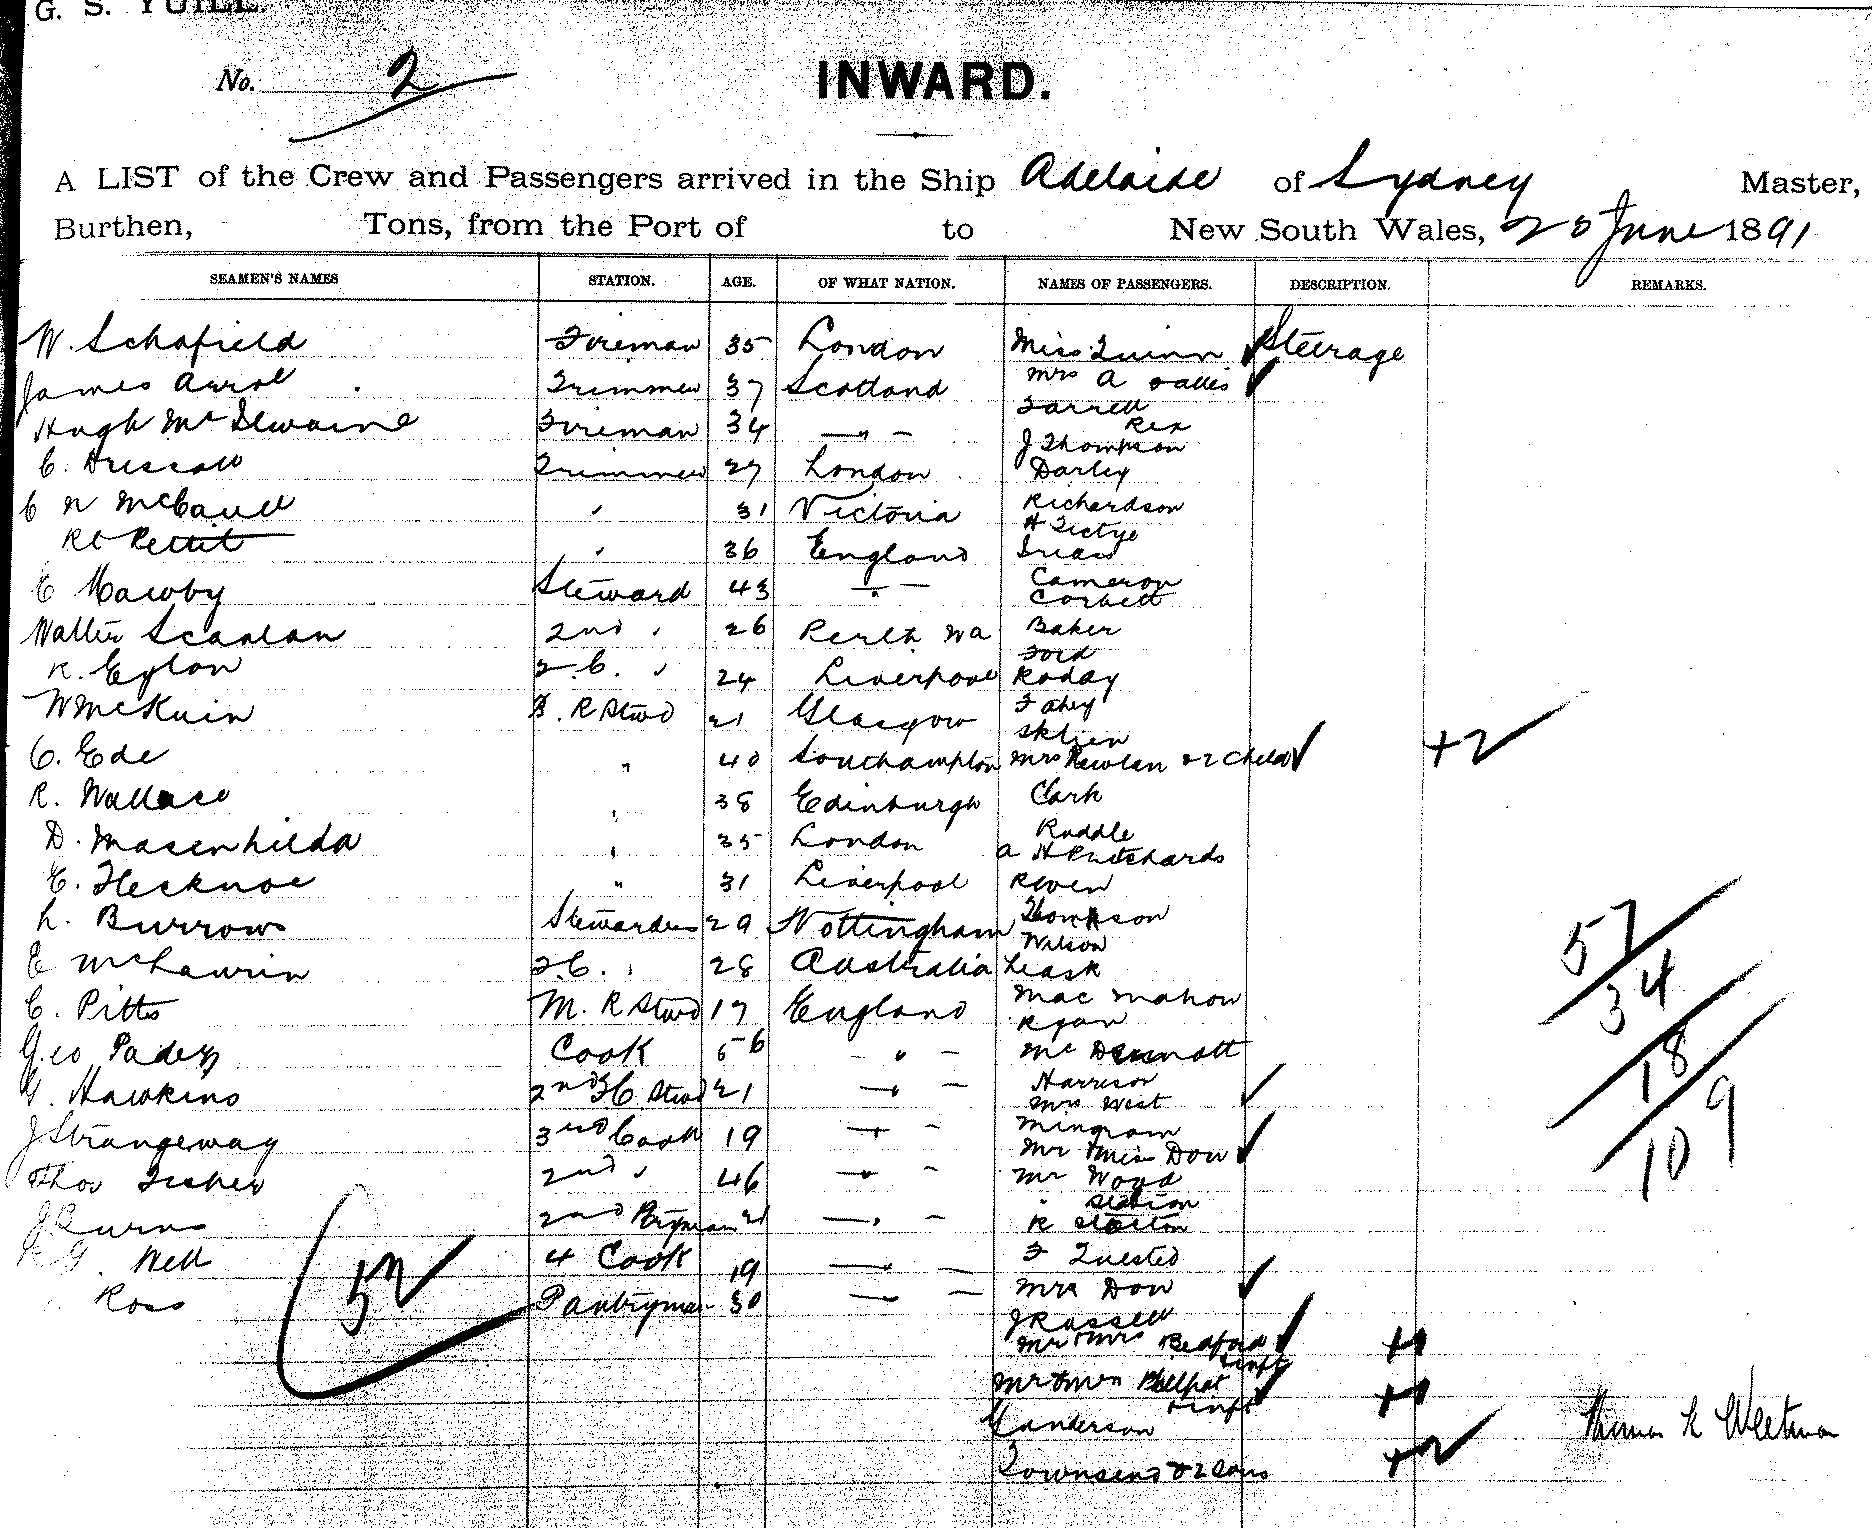 G. S. YUILL.
No. 2
INWARD.
A LIST of the Crew and Passengers arrived in the Ship Adelaide of Sydney Master,
Burthen, Tons, from the Port of to New South Wales, 20 June 1891
SEAMEN'S NAMES STATION. AGE. OF WHAT NATION. NAMES OF PASSENGERS. DESCRIPTION. REMARKS.
W. Schofield Fireman 35 London Miss Quinn Steerage
James Arrol Trimmer 37 Scotland Mrs A
Farrell
Hugh McIlwaine Fireman 34 — " — Rex
J Thompson
C. Driscoll Trimmer 27 London Darley
C N McCaull " 31 Victoria Richardson
H
Pettit " 36 England
E Mawby Steward 43 — " — Cameron
Corbett
Walter Scanlan 2nd " 26 Perth Wa Baker
Ford
R. Eglon 2 C. " 24 Liverpool Roday
W McKuin B. R Stwd 21 Glasgow Fahey
C. Ede " 40 Southampton Mrs & 2 Child +2
R. Wallace " 38 Edinburgh Clark
D. Masenhilda " 35 London Ruddle
A H Pritchards
E. Flecknoe " 31 Liverpool
L. Burrows Stewardess 29 Nottingham Thompson
Wilson
E McLaurin F.C. " 28 Australia Leask
C. Pitts M. R Stwd 17 England Mac Mahon
Ryan
57
34
Geo Padey Cook 56 — " — Mc Dermott
18
G. Hawkins 2nd F.C. Stwd 21 — " — Harrison
Mrs West
9
J Strangeway 3rd Cook 19 — " — Mingram
Mr & Miss Dow
109
Thos Fisher 2nd " 46 — " — Mr Wood
J Burns 2nd Ptryman 21 — " — R
Nell 4 Cook 19 — — F Quested
Ross Pantryman 30 — — Mrs Dow
52
J Russell
Mr & Mrs Bedford +1
& inft
Mr & Mrs +1
& inft
G Anderson
Thomas R Weetman
Townsend & 2 Sons +2